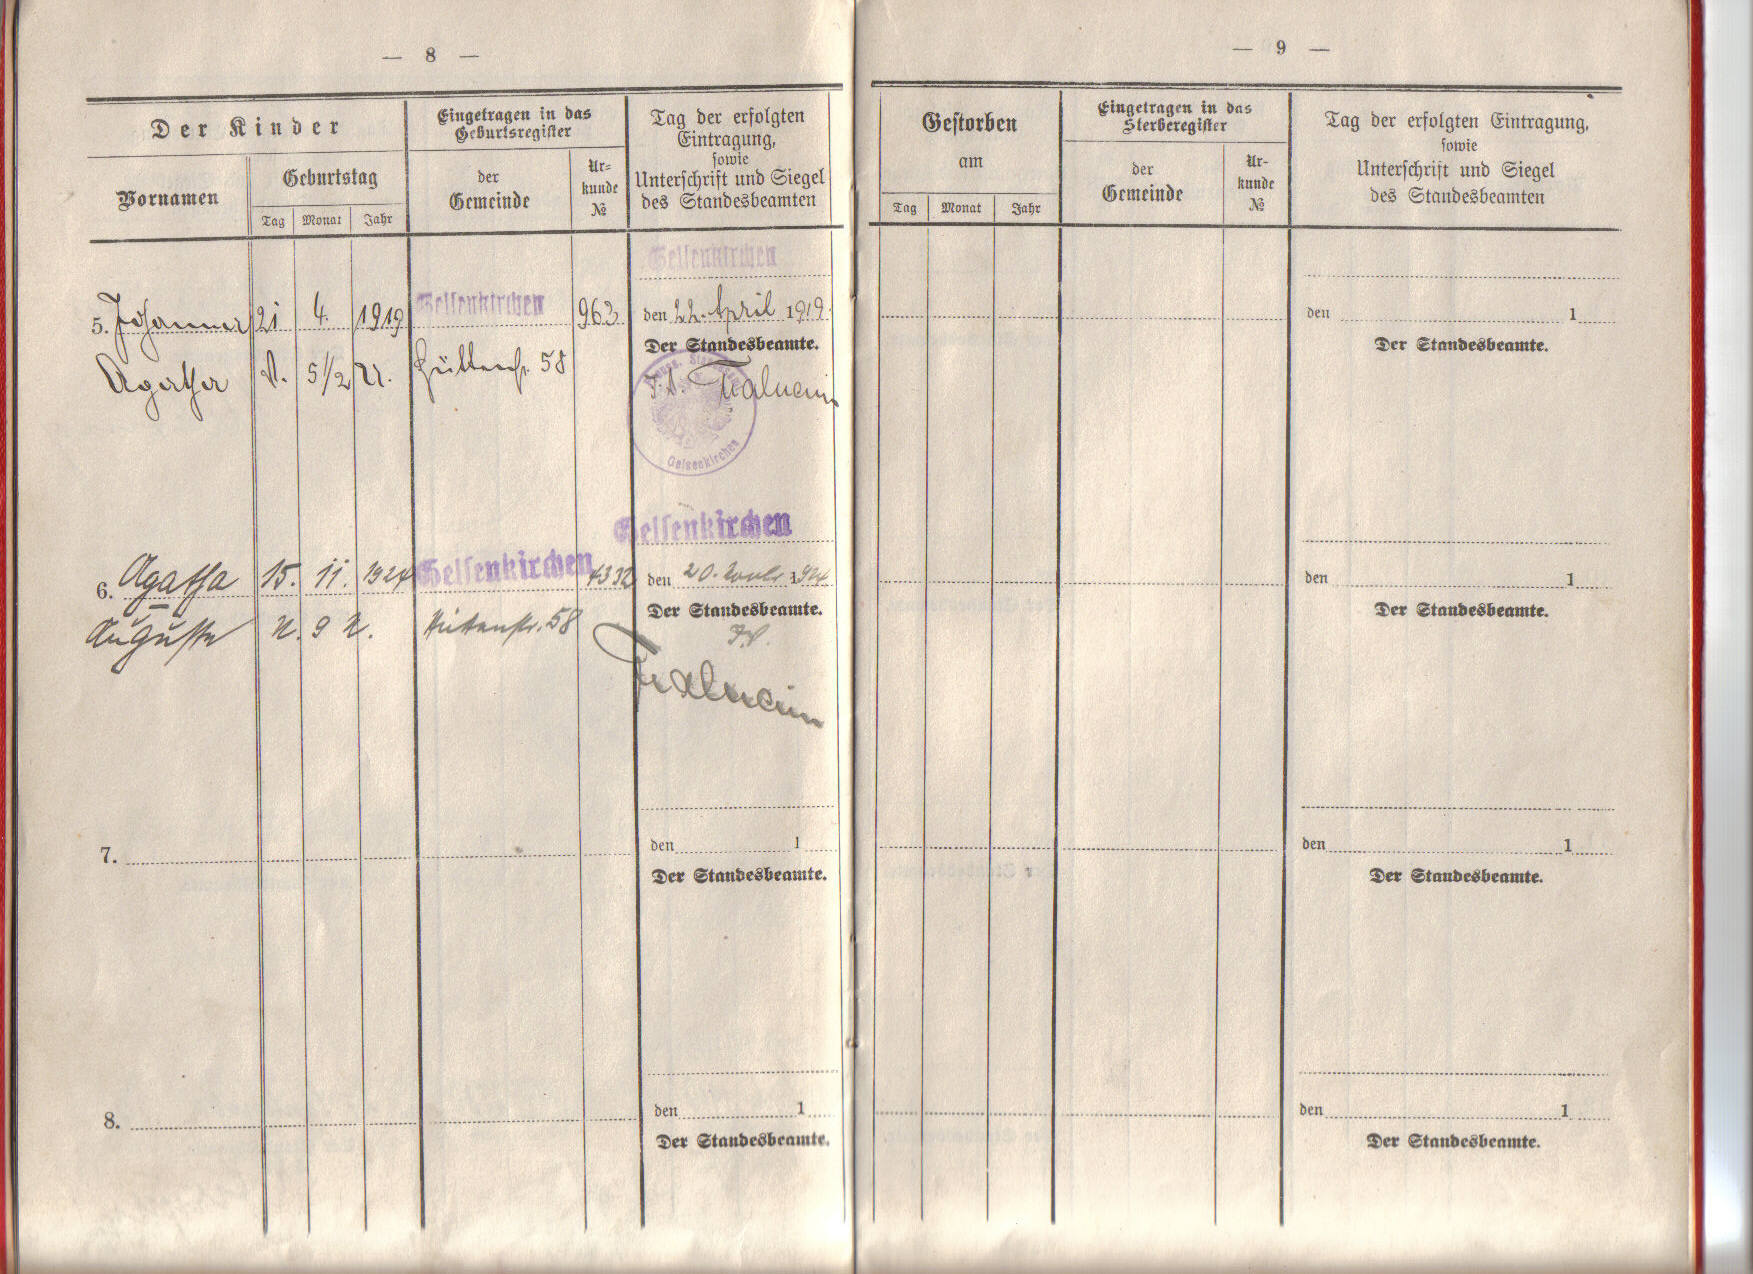 — 8 —
Der Kinder
Eingetragen in das
Geburtsregister
Tag der erfolgten
Eintragung,
sowie
Unterschrift und Siegel
des Standesbeamten
Vornamen
Geburtstag
Tag
Monat
Jahr
der
Gemeinde
Ur=
kunde
№
Gelsenkirchen
5. Johanna 21 4. 1919 Gelsenkirchen 963 den 22. April 1919.
Der Standesbeamte.
Agatha N. 5 1/2 U. Hüttenstr. 58
Gelsenkirchen
Gelsenkirchen
6. Agatha 15. 11. 1924 Gelsenkirchen 4332 den 20. 1924
Der Standesbeamte.
Auguste N. 9 U. Hüttenstr. 58
7. den 1
Der Standesbeamte.
8. den 1
Der Standesbeamte.
— 9 —
Gestorben
am
Tag
Monat
Jahr
Eingetragen in das
Sterberegister
der
Gemeinde
Ur-
kunde
№
Tag der erfolgten Eintragung,
sowie
Unterschrift und Siegel
des Standesbeamten
den 1
Der Standesbeamte.
den 1
Der Standesbeamte.
den 1
Der Standesbeamte.
den 1
Der Standesbeamte.